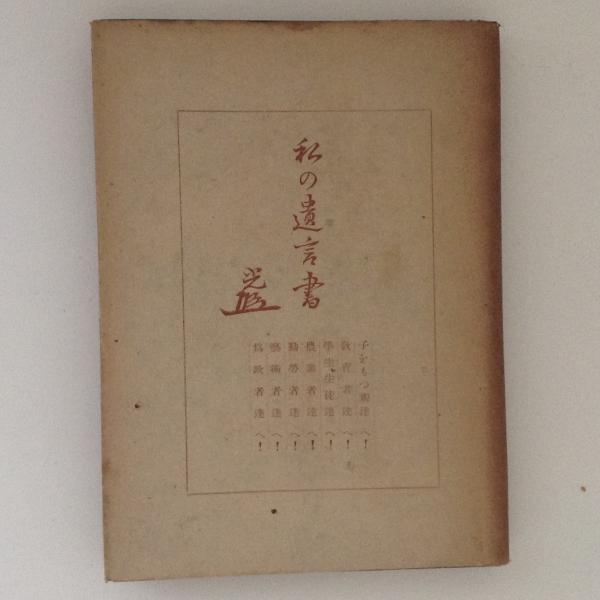 私の遺言書
子をもつ親達へ!
教育者達へ!
學生生徒達へ!
農業者達へ!
勤勞者達へ!
藝術者達へ!
為政者達へ!